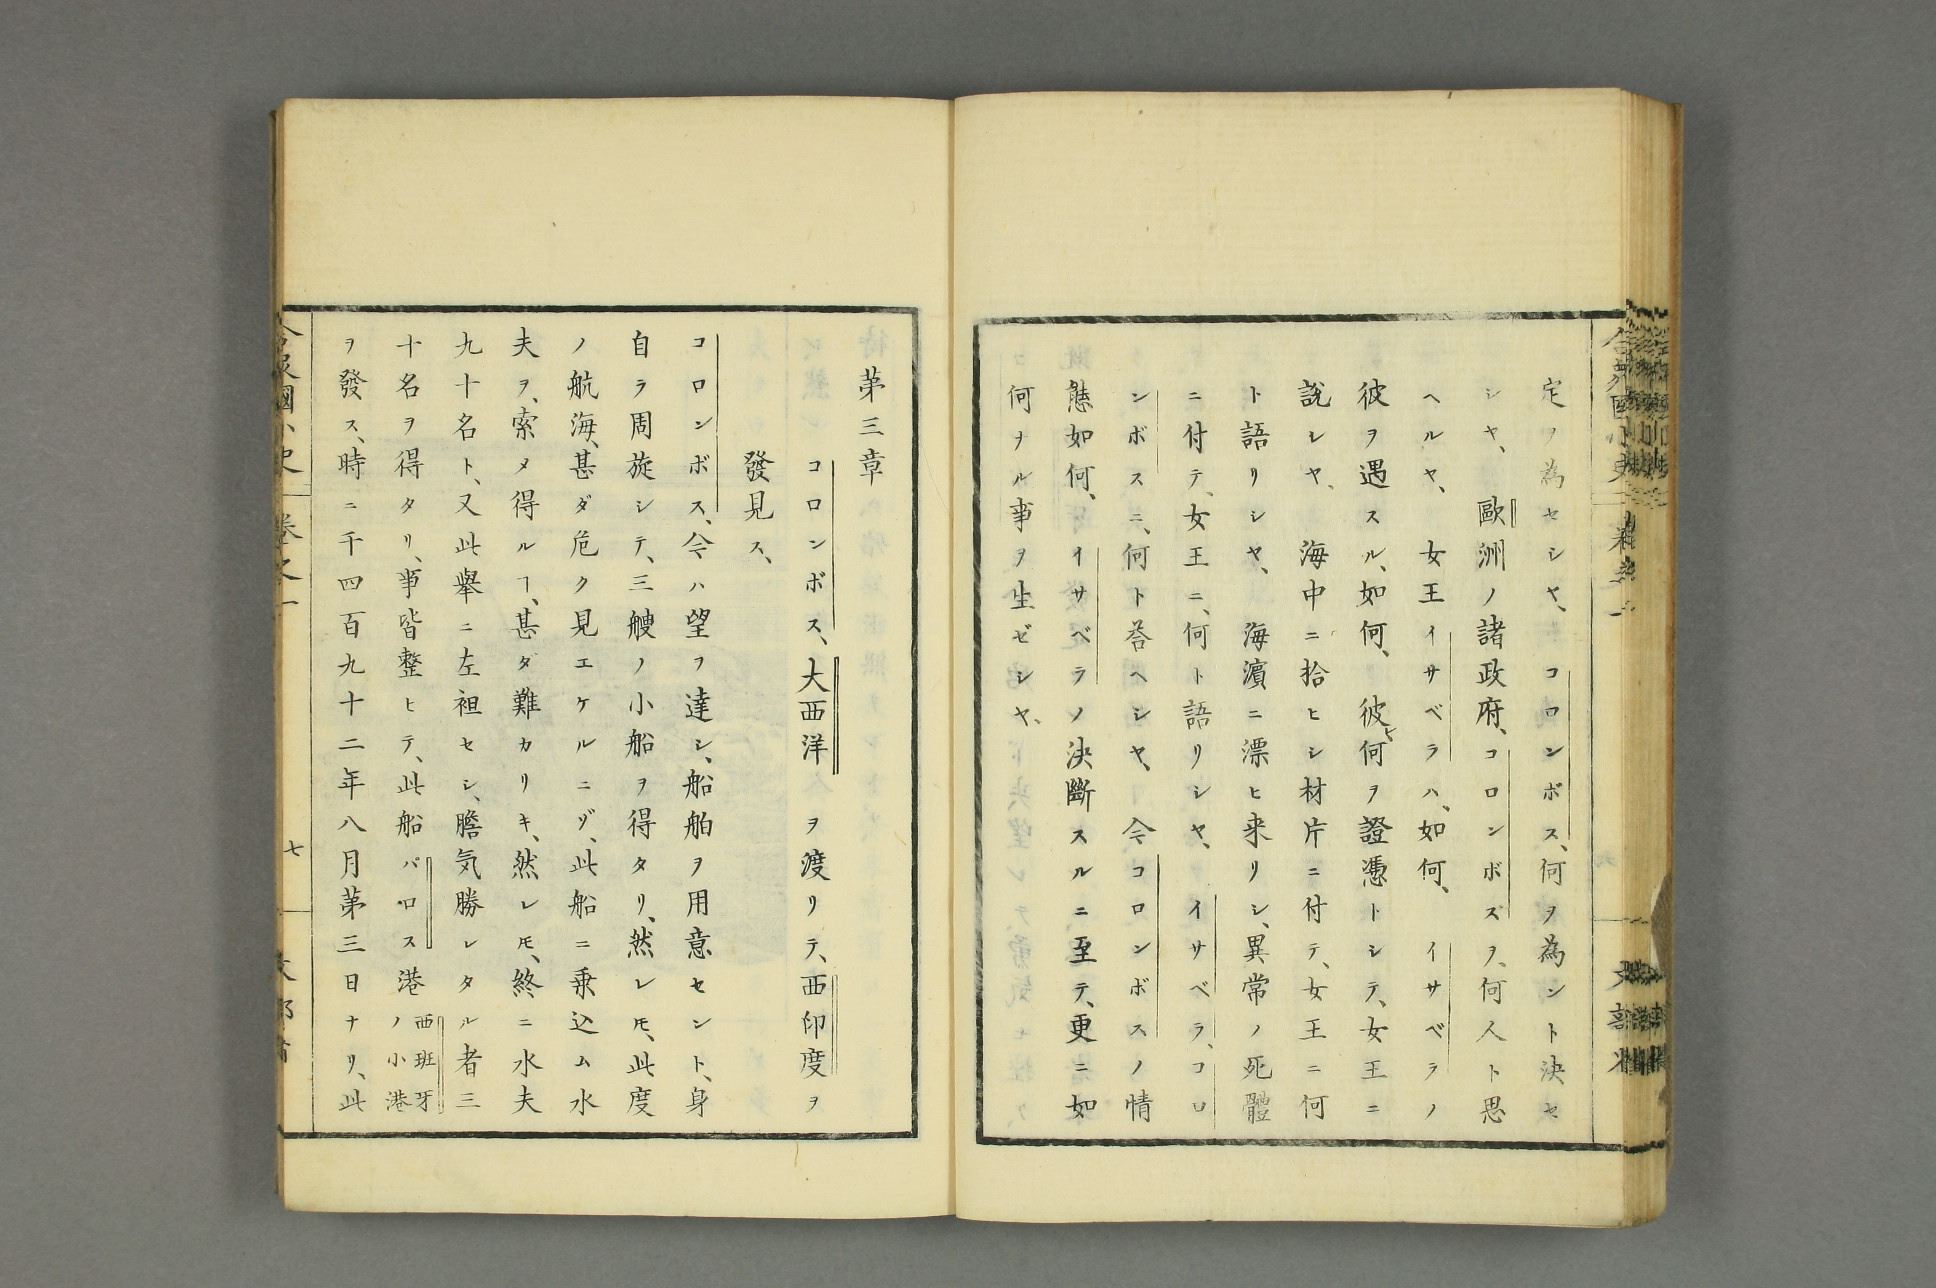 定ヲ為セシヤ、コロンボス、何ヲ為ント決セ
シヤ、歐洲ノ諸政府、コロンボズヲ、何人ト思
ヘルヤ、女王イサベラハ、如何、イサベラノ
彼ヲ遇スル、如何、彼ヒ何ヲ證憑トシテ、女王ニ
説シヤ、海中ニ拾ヒシ材片ニ付テ、女王ニ何
ト語リシヤ、海濵ニ漂ヒ来リシ、異常ノ死體
ニ付テ、女王ニ、何ト語リシヤ、イサベラ、コロ
ンボスニ、何ト荅ヘシヤ、今コロンボスノ情
態如何、イサベラノ決斷スルニ至テ、更ニ如
何ナル事ヲ生ゼシヤ、
第三章
コロンボス、大西洋ヲ渡リテ、西印度ヲ
發見ス、
コロンボス、今ハ望ヲ達シ、船舶ヲ用意セント、身
自ラ周旋シテ、三艘ノ小船ヲ得タリ、然レモ、此度
ノ航海、甚ダ危ク見エケルニゾ、此船ニ乗込ム水
夫ヲ、索メ得ルヿ、甚ダ難カリキ、然レモ、終ニ水夫
九十名ト、又此舉ニ左袒セシ、膽気勝レタル者三
十名ヲ得タリ、事皆整ヒテ、此船パロス港西班牙ノ小港
ヲ發ス、時ニ千四百九十二年八月第三日ナリ、此
合衆國小史
卷之一
七
文部省